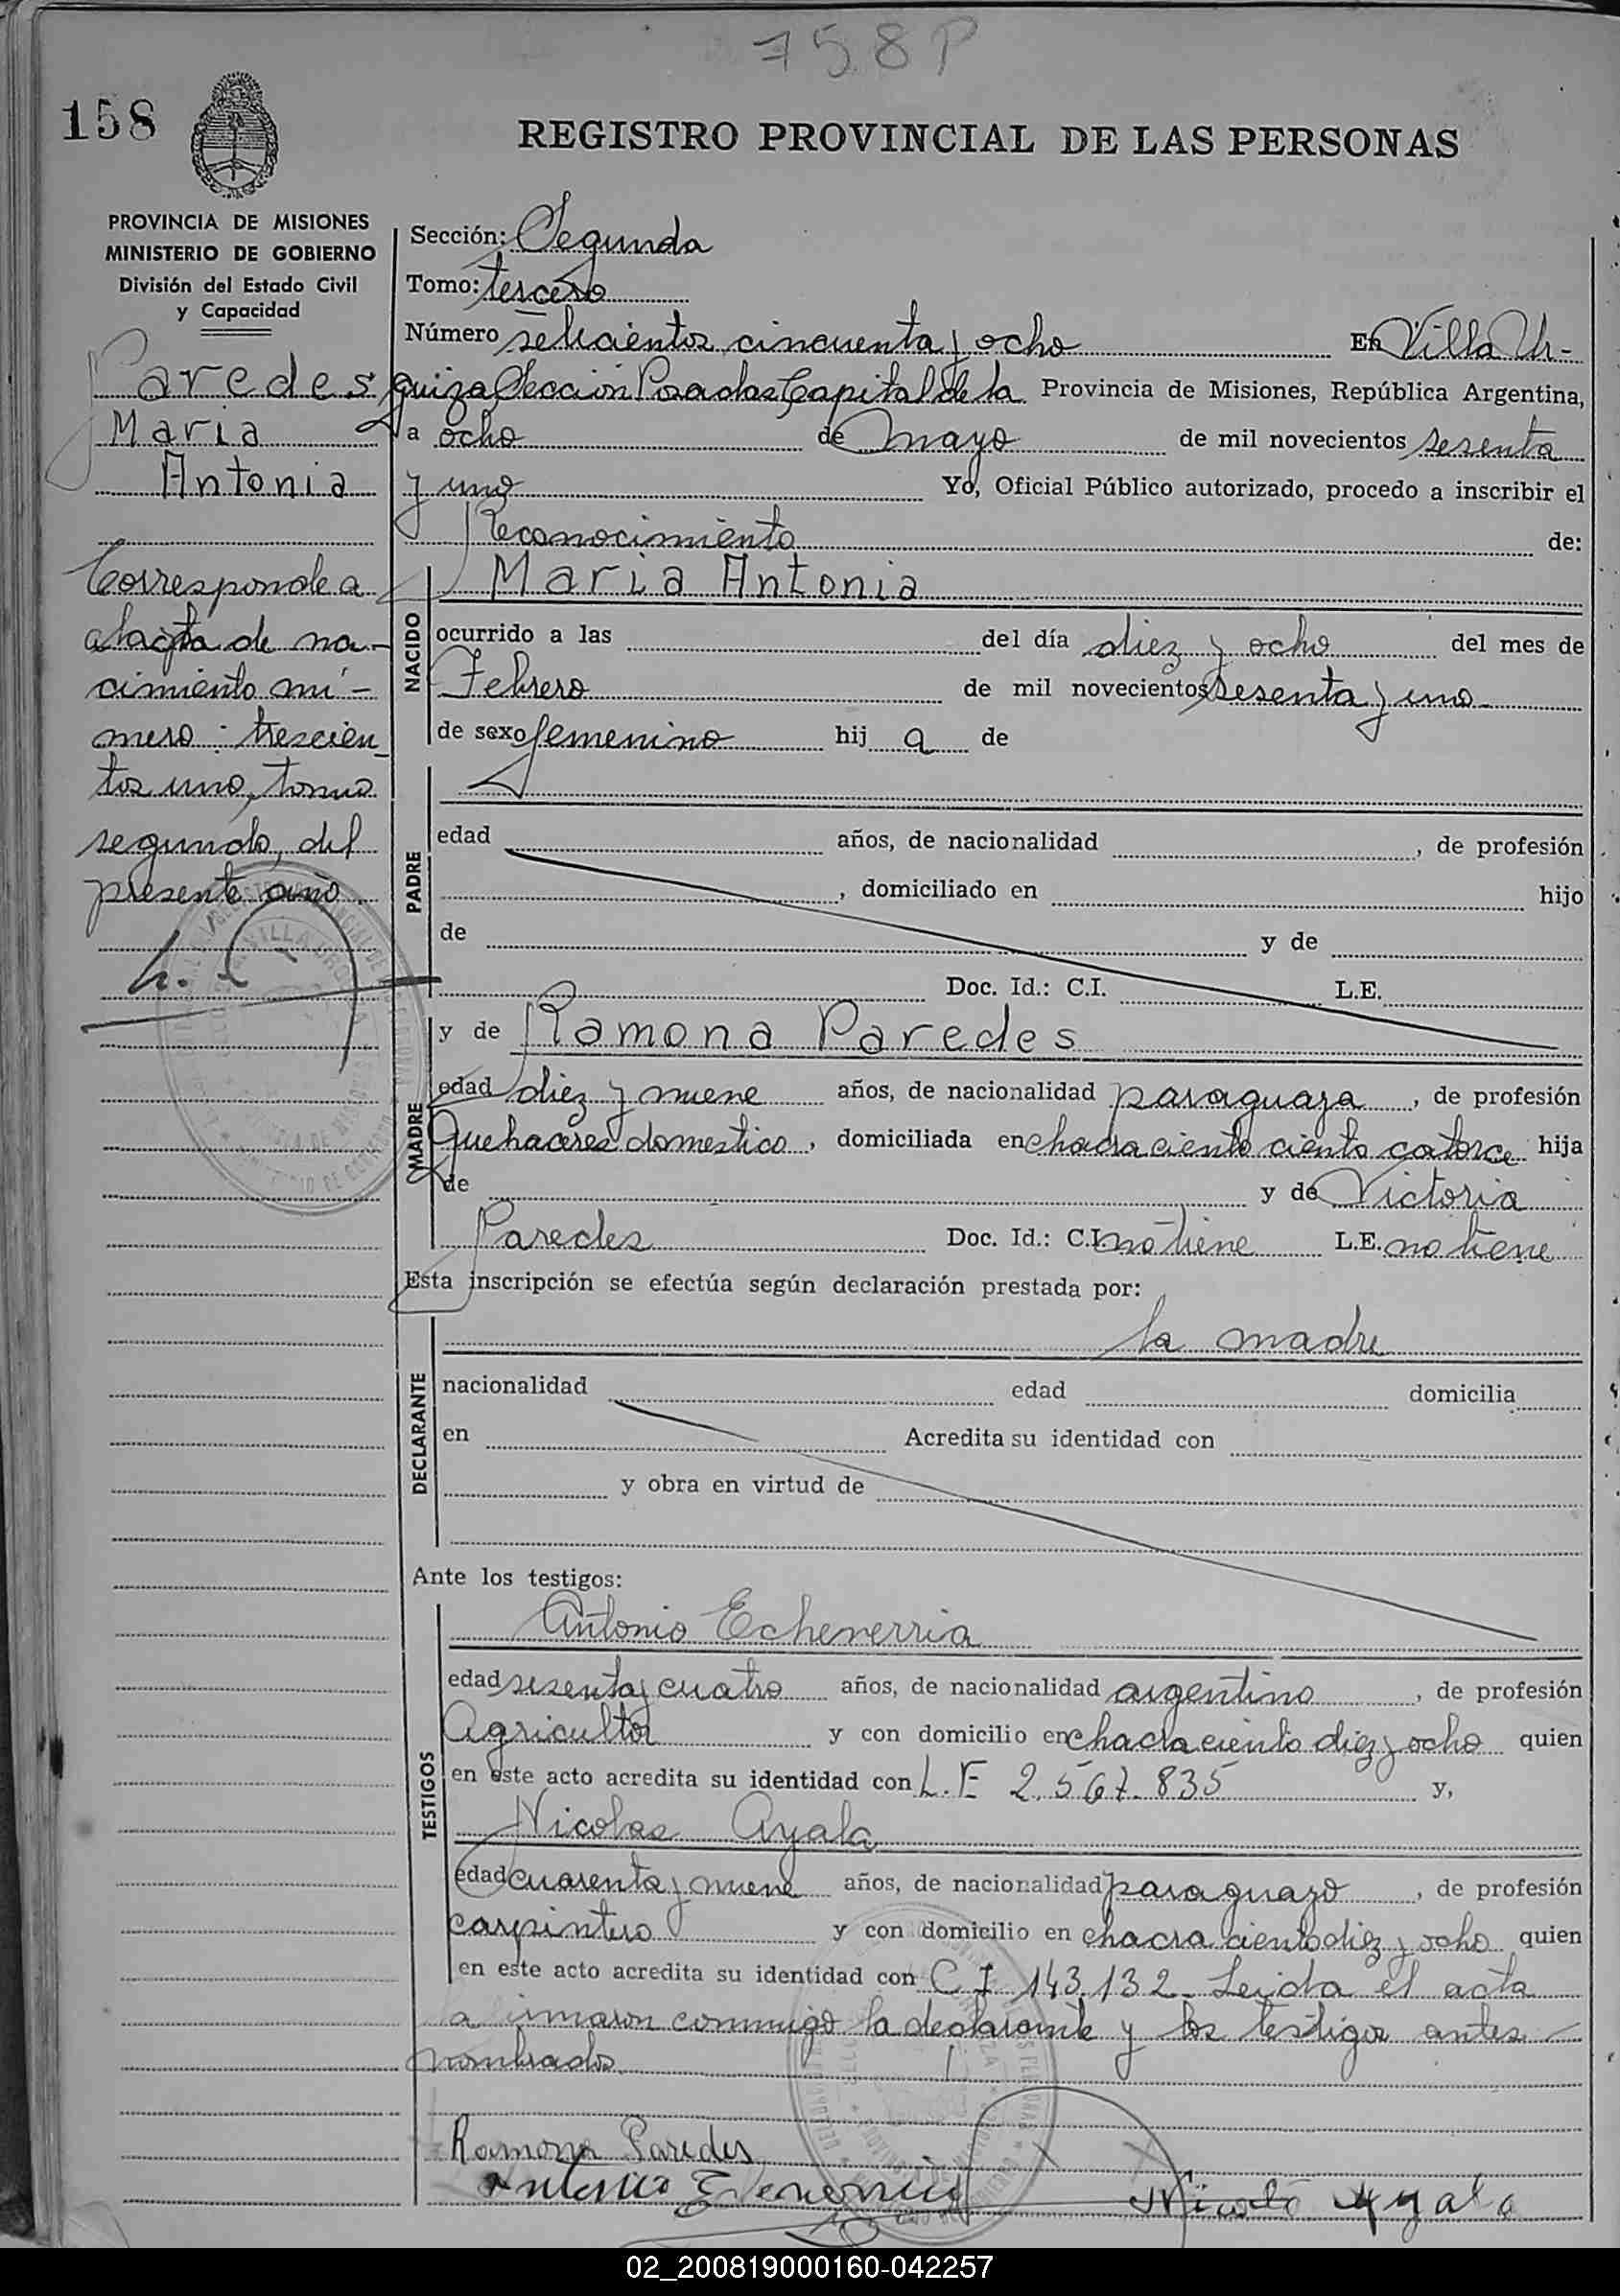 758P
158
REGISTRO PROVINCIAL DE LAS PERSONAS
PROVINCIA DE MISIONES
MINISTERIO DE GOBIERNO
División del Estado Civil
y Capacidad
Paredes
Maria
Antonia
Corresponde a
al acta de na-
cimiento nú-
mero: trescien
tos uno, tomo
segundo, del
presente año.
Sección: Segunda
Tomo: tercero
Número seticientos cincuenta y ocho En Villa Ur-
quiza Sección Posadas Capital de la Provincia de Misiones, República Argentina,
a ocho de mayo de mil novecientos sesenta
y uno Yo, Oficial Público autorizado, procedo a inscribir el
Reconocimiento de:
NACIDO
Maria Antonia
ocurrido a las del día diez y ocho del mes de
Febrero de mil novecientos sesenta y uno
de sexo femenino hij a de
PADRE
edad años, de nacionalidad , de profesión
, domiciliado en hijo
de y de
Doc. Id.: C.I. L.E.
MADRE
y de Ramona Paredes
edad diez y nueve años, de nacionalidad paraguaya, de profesión
Quehaceres domestico, domiciliada en chacra ciento ciento catorce hija
de y de Victoria
Paredes Doc. Id.: C.I. no tiene L.E. no tiene
Esta inscripción se efectúa según declaración prestada por:
DECLARANTE
la madre
nacionalidad edad domicilia
en Acredita su identidad con
y obra en virtud de
Ante los testigos:
TESTIGOS
Antonio Echeverria
edad sesenta y cuatro años, de nacionalidad argentino, de profesión
Agricultor y con domicilio en chacra ciento diez y ocho quien
en este acto acredita su identidad con L.E 2.567.835 y,
Nicolas Ayala
edad cuarenta y nueve años, de nacionalidad paraguayo, de profesión
carpintero y con domicilio en chacra ciento diez y ocho quien
en este acto acredita su identidad con C I 143.132. Leida el acta
la firmaron conmigo la declarante y los testigos antes
nombrados.
Ramona Paredes
Antonio Echeverria
Nicolas Ayala
02_200819000160-042257